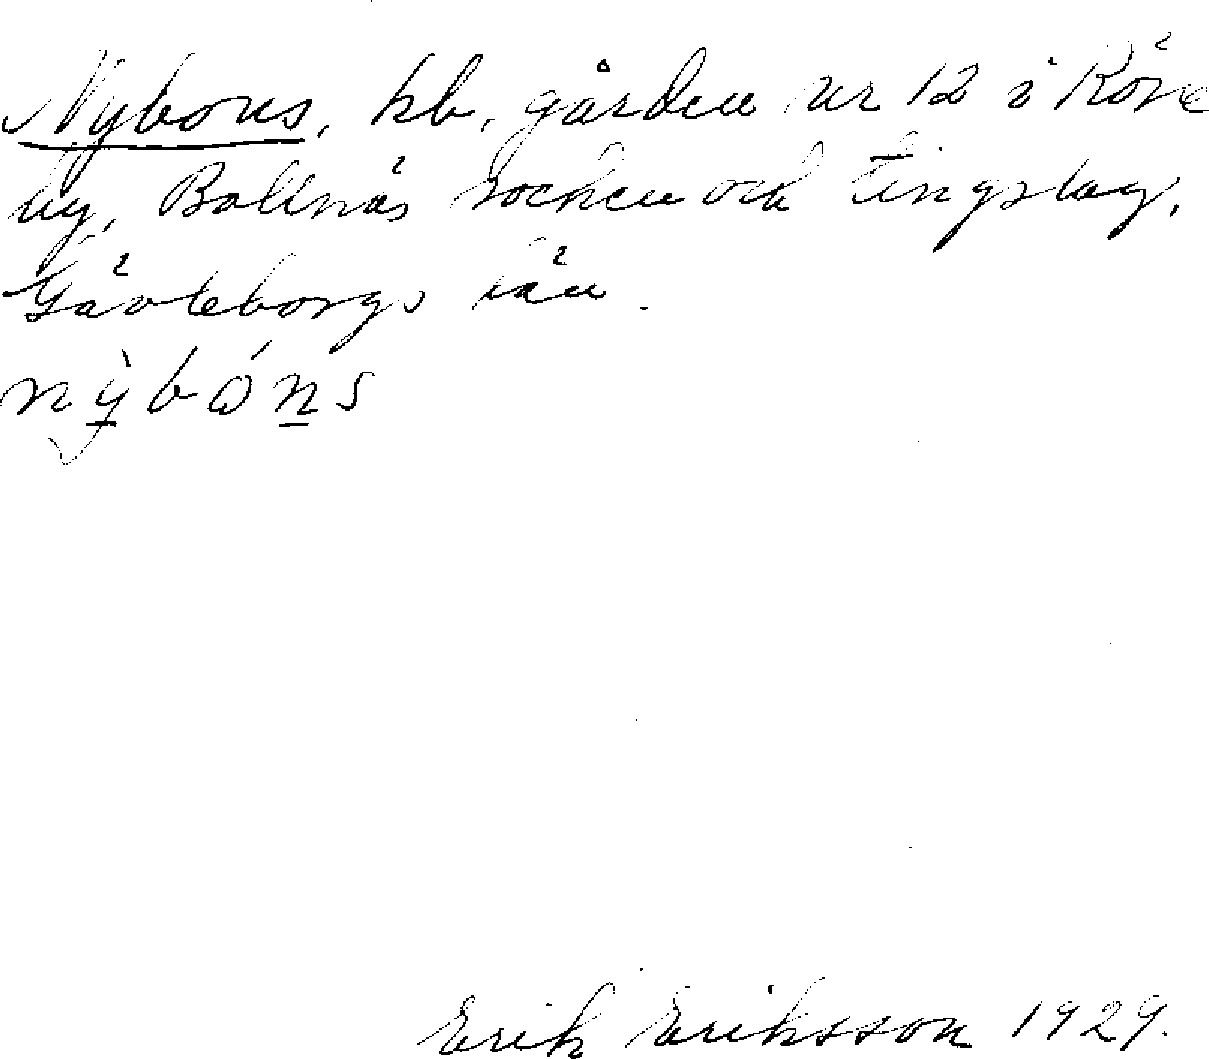 Nybons, kb, gården nr 12 i Röste
by, Bollnäs socken och tingslag,
Gävleborgs län.
nỳbóns
Erik Eriksson 1929.